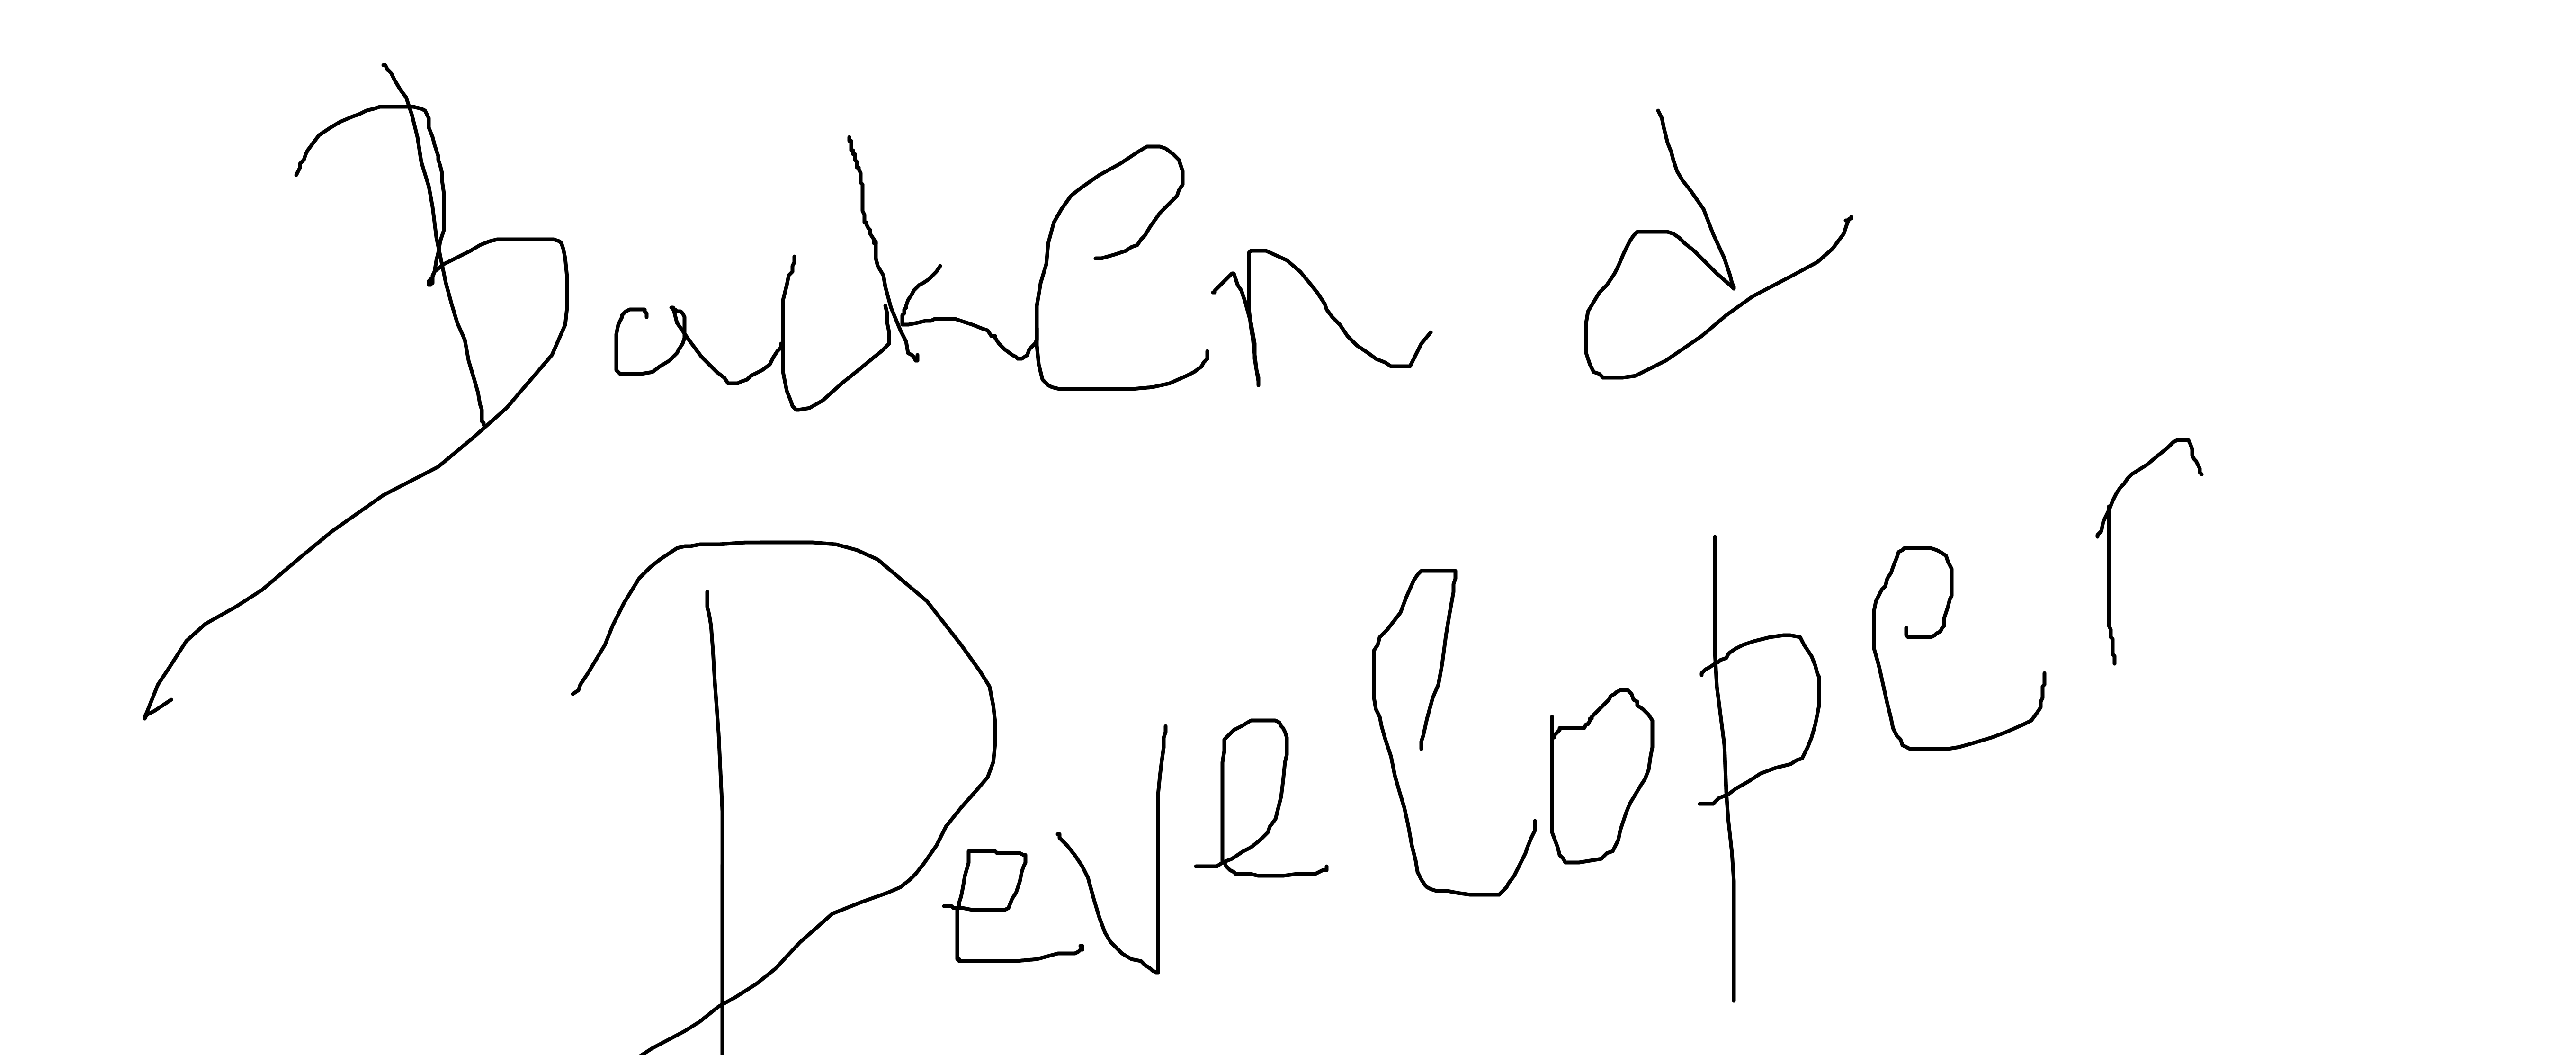 Backen d
Developer